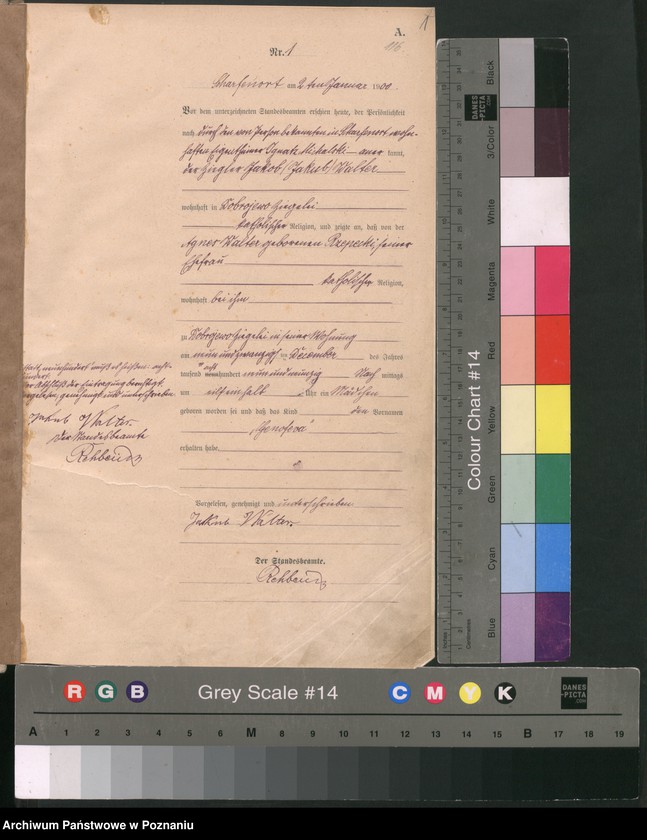 1
A.
116.
Nr. 1
Scharfenort am 2 ten Januar 1900.
Vor dem unterzeichneten Standesbeamten erschien heute, der Persönlichkeit
nach durch den von Person bekannten in Scharfenort wohn-
haften Eigenthümer Ignatz Michalski aner kannt,
der Ziegler Jakob /Jakub/ Walter
wohnhaft in Dobrojewo Ziegelei
katholischer Religion, und zeigte an, daß von der
Agnes Walter geborenen Rzepecki, seiner
Ehefrau
katholischer Religion,
wohnhaft bei ihm
zu Dobrojewo Ziegelei in seiner Wohnung
am neun und zwanzigsten December des Jahres
tausend acht hundert neun und neunzig Nach mittags
um ein halb Uhr ein Mädchen
geboren worden sei und daß das Kind den Vornamen
„Genofeva"
erhalten habe.
Vorgelesen, genehmigt und unterschrieben
Jakub Walter.
Der Standesbeamte.
Rehbein
neunhundert muß es heißen acht-
hundert
Abschluß der Eintragung berichtigt.
Vorgelesen, genehmigt und unterschrieben.
Jakub Walter.
Der Standesbeamte
Rehbein
Colour Chart #14
Black
3/Color
White
Magenta
Red
Yellow
Green
Cyan
Blue
DANES
-PICTA
.COM
Inches
Centimetres
R G B
Grey Scale #14
C M Y K
DANES
-PICTA
.COM
A 1 2 3 4 5 6 M 8 9 10 11 12 13 14 15 B 17 18 19
Archiwum Państwowe w Poznaniu